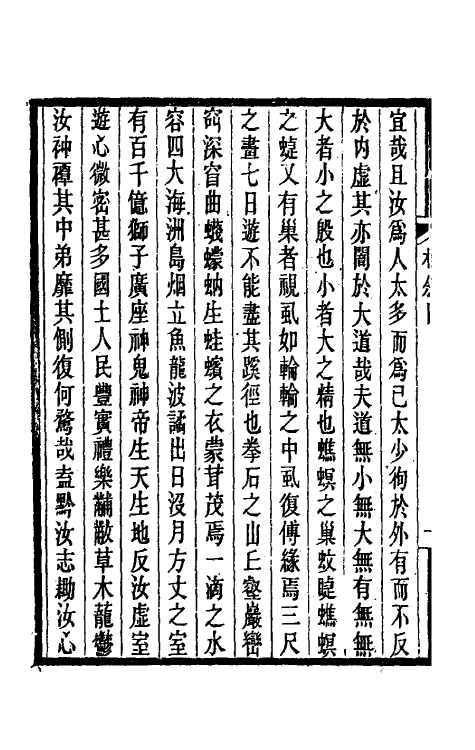 宜哉且汝爲人太多而爲已太少徇於外有而不反
於内虛其亦闇於大道哉夫道無小無大無有無無
大者小之殷也小者大之精也蟭螟之巢蚊睫蟭螟
之蜨又有巢者視虱如輪輪之中虱復傅緣焉三尺
之畫七日遊不能盡其蹊徑也拳石之山丘壑巖巒
窅深窅曲蟻蠓蚋生蛙蠙之衣蒙茸茂焉一滴之水
容四大海洲島烟立魚龍波譎出日沒月方丈之室
有百千億獅子廣座神鬼神帝生天生地反汝虛室
遊心微密甚多國土人民豐實禮樂黼黻草木龍鬱
汝神禫其中弟靡其側復何騖哉盍黔汝志鋤汝心